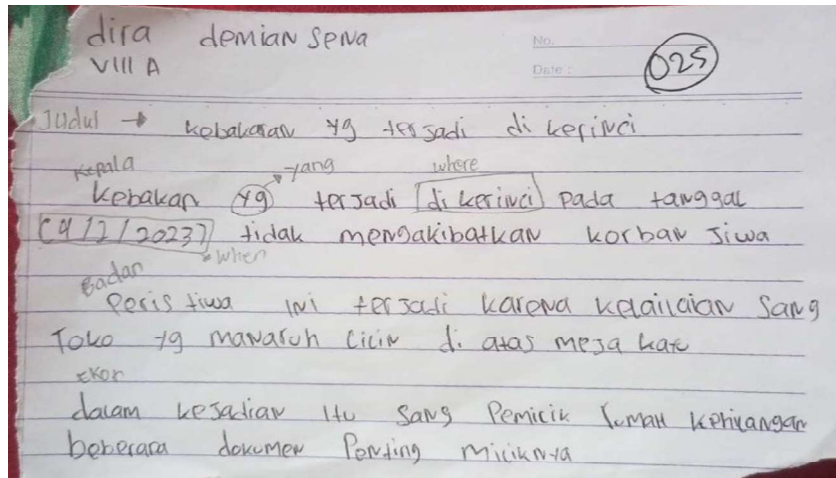 dira demian sena
VIII A
No.
Date :
025
Judul → kebakaran yg terjadi di kerinci
Kepala yang where
kebakan yg terjadi di kerinci pada tanggal
(9/2/2023) tidak mengakibatkan korban jiwa
when
Badan
Peristiwa ini terjadi karena kelailaian sang
Toko yg manaruh lilin di atas meja kayu
Ekor
dalam kejadian itu sang Pemilik rumah kehilangan
beberapa dokumen Penting miliknya